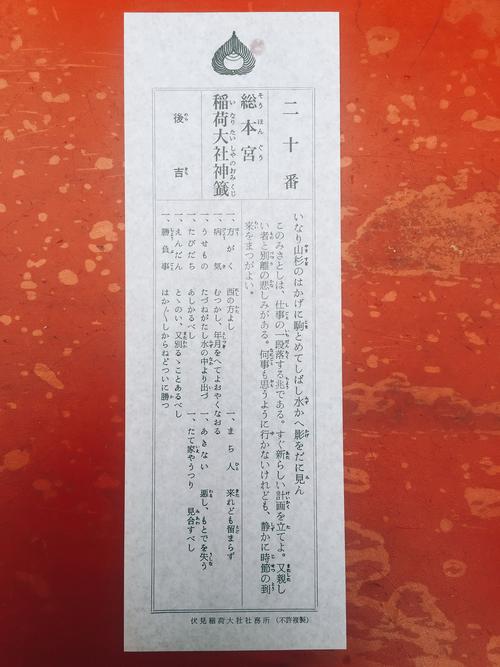 二十番
総本宮
稲荷大社神籤
後吉
いなり山杉のはかげに駒とめてしばし水かへ影をだに見ん
このみさとしは、仕事の一段落する兆である。すぐ新らしい計画を立てよ。又親し
い者と別離の悲しみがある。何事も思うように行かないけれども、静かに時節の到
来をまつがよい。
一、方がく 西の方よし
一、病気 むつかし、年月をへてよおやくなおる
一、うせもの たづねがたし水の中より出づ
一、たびだち あしかるべし
一、えんだん とゝのい、又別るゝことあるべし
一、勝負事 はか〴〵しからねどついに勝つ
一、まち人 来れども留まらず
一、あきない 悪し、もとでを失う
一、たて家やうつり 見合すべし
伏見稲荷大社社務所(不許複製)